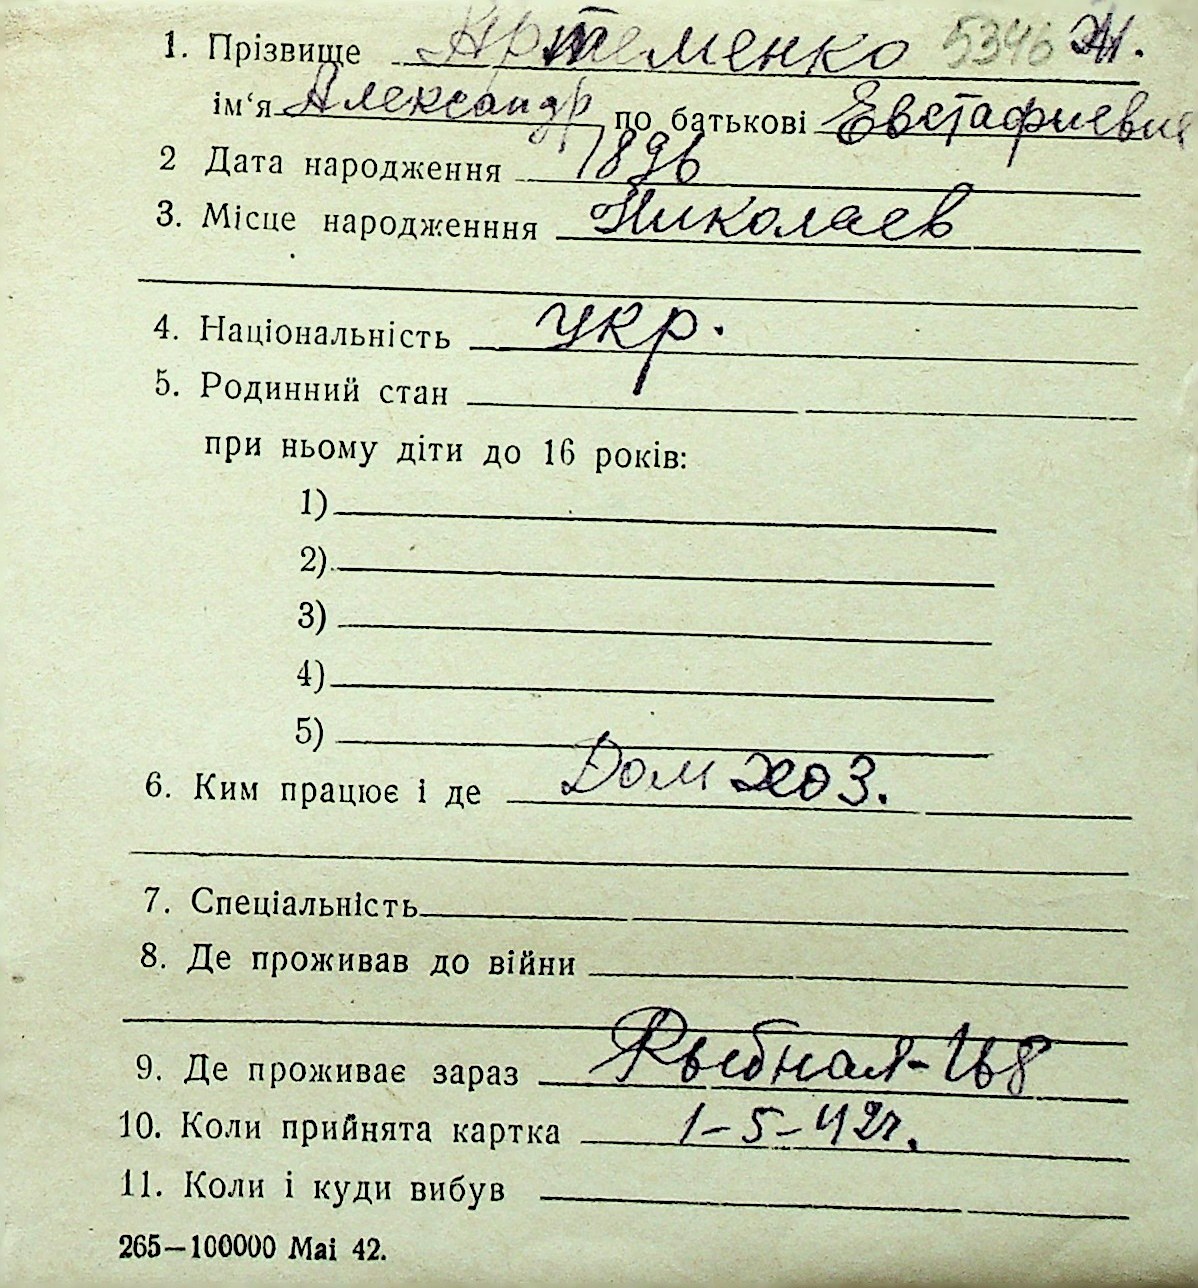 1. Прізвище Артеменко 5346 Ж.
ім‘я Александр по батькові Евстафиевич
2 Дата народження 1896
3. Місце народженння Николаев
4. Національність укр.
5. Родинний стан
при ньому діти до 16 років:
1)
2)
3)
4)
5)
6. Ким працює і де Дом хоз.
7. Спеціальність
8. Де проживав до війни
9. Де проживає зараз Рыбная-
10. Коли прийнята картка 1-5-42г.
11. Коли і куди вибув
265—100000 Mai 42.